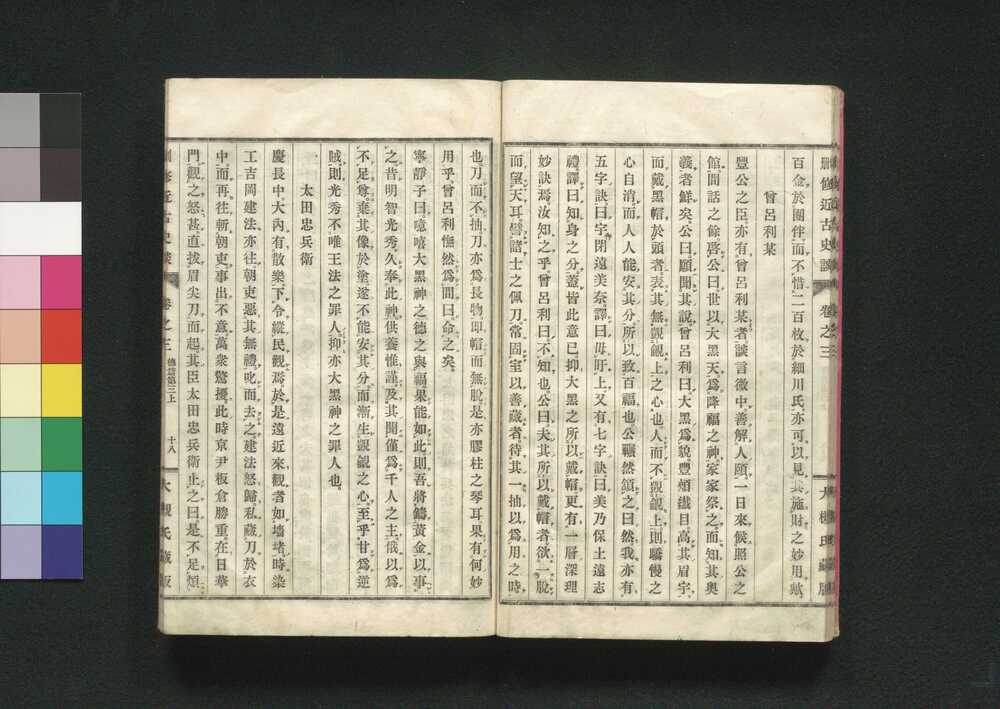 刪修近古史談 卷之三
百金於團伴而不惜二百枚於細川氏亦可以見其施財之妙用歟
曾呂利某
豐公之臣亦有曾呂利某者談言微中善解人頤一日來候照公之
館間話之餘啓公曰世以大黑天爲降福之神家家祭之而知其奧
義者鮮矣公曰願聞其說曾呂利曰大黑爲貌豐頰纖目高其眉宇
而戴黑帽於頭者表其無覬覦上之心也人而不覬覦上則驕慢之
心自消而人人能安其分所以致百福也公囅然頷之曰然我亦有
五字訣曰宇閉遠美奈譯曰毋盱上又有七字訣曰美乃保土遠志
禮譯曰知身之分蓋皆此意已抑大黑之所以戴帽更有一層深理
妙訣焉汝知之乎曾呂利曰不知也公曰夫其所以戴帽者欲一脫
而望天耳譬諸士之佩刀常固室以善藏者待其一抽以爲用之時
也刀而不抽刀亦爲長物即帽而無脫是亦膠柱之琴耳果有何妙
用乎曾呂利憮然爲間曰命之矣
寧靜子曰噫嘻大黑神之德之與福果能如此則吾將鑄黃金以事
之昔明智光秀久奉此神供養惟謹及其聞僅爲千人之主俄以爲
不足尊棄其像於塗遂不能安其分而漸生覬覦之心至乎甘爲逆
賊則光秀不唯王法之罪人抑亦大黑神之罪人也
太田忠兵衛
慶長中大內有散樂下令縱民觀焉於是遠近來觀者如墻堵時染
工吉岡建法亦往朝吏惡其無禮叱而去之建法怒歸私藏刀於衣
中而再往斬朝吏事出不意萬衆驚擾此時京尹板倉勝重在日華
門觀之怒甚直拔眉尖刀而起其臣太田忠兵衛止之曰是不足煩
刪修近古史談 卷之三 德世第三上 十八 大槻氏藏版